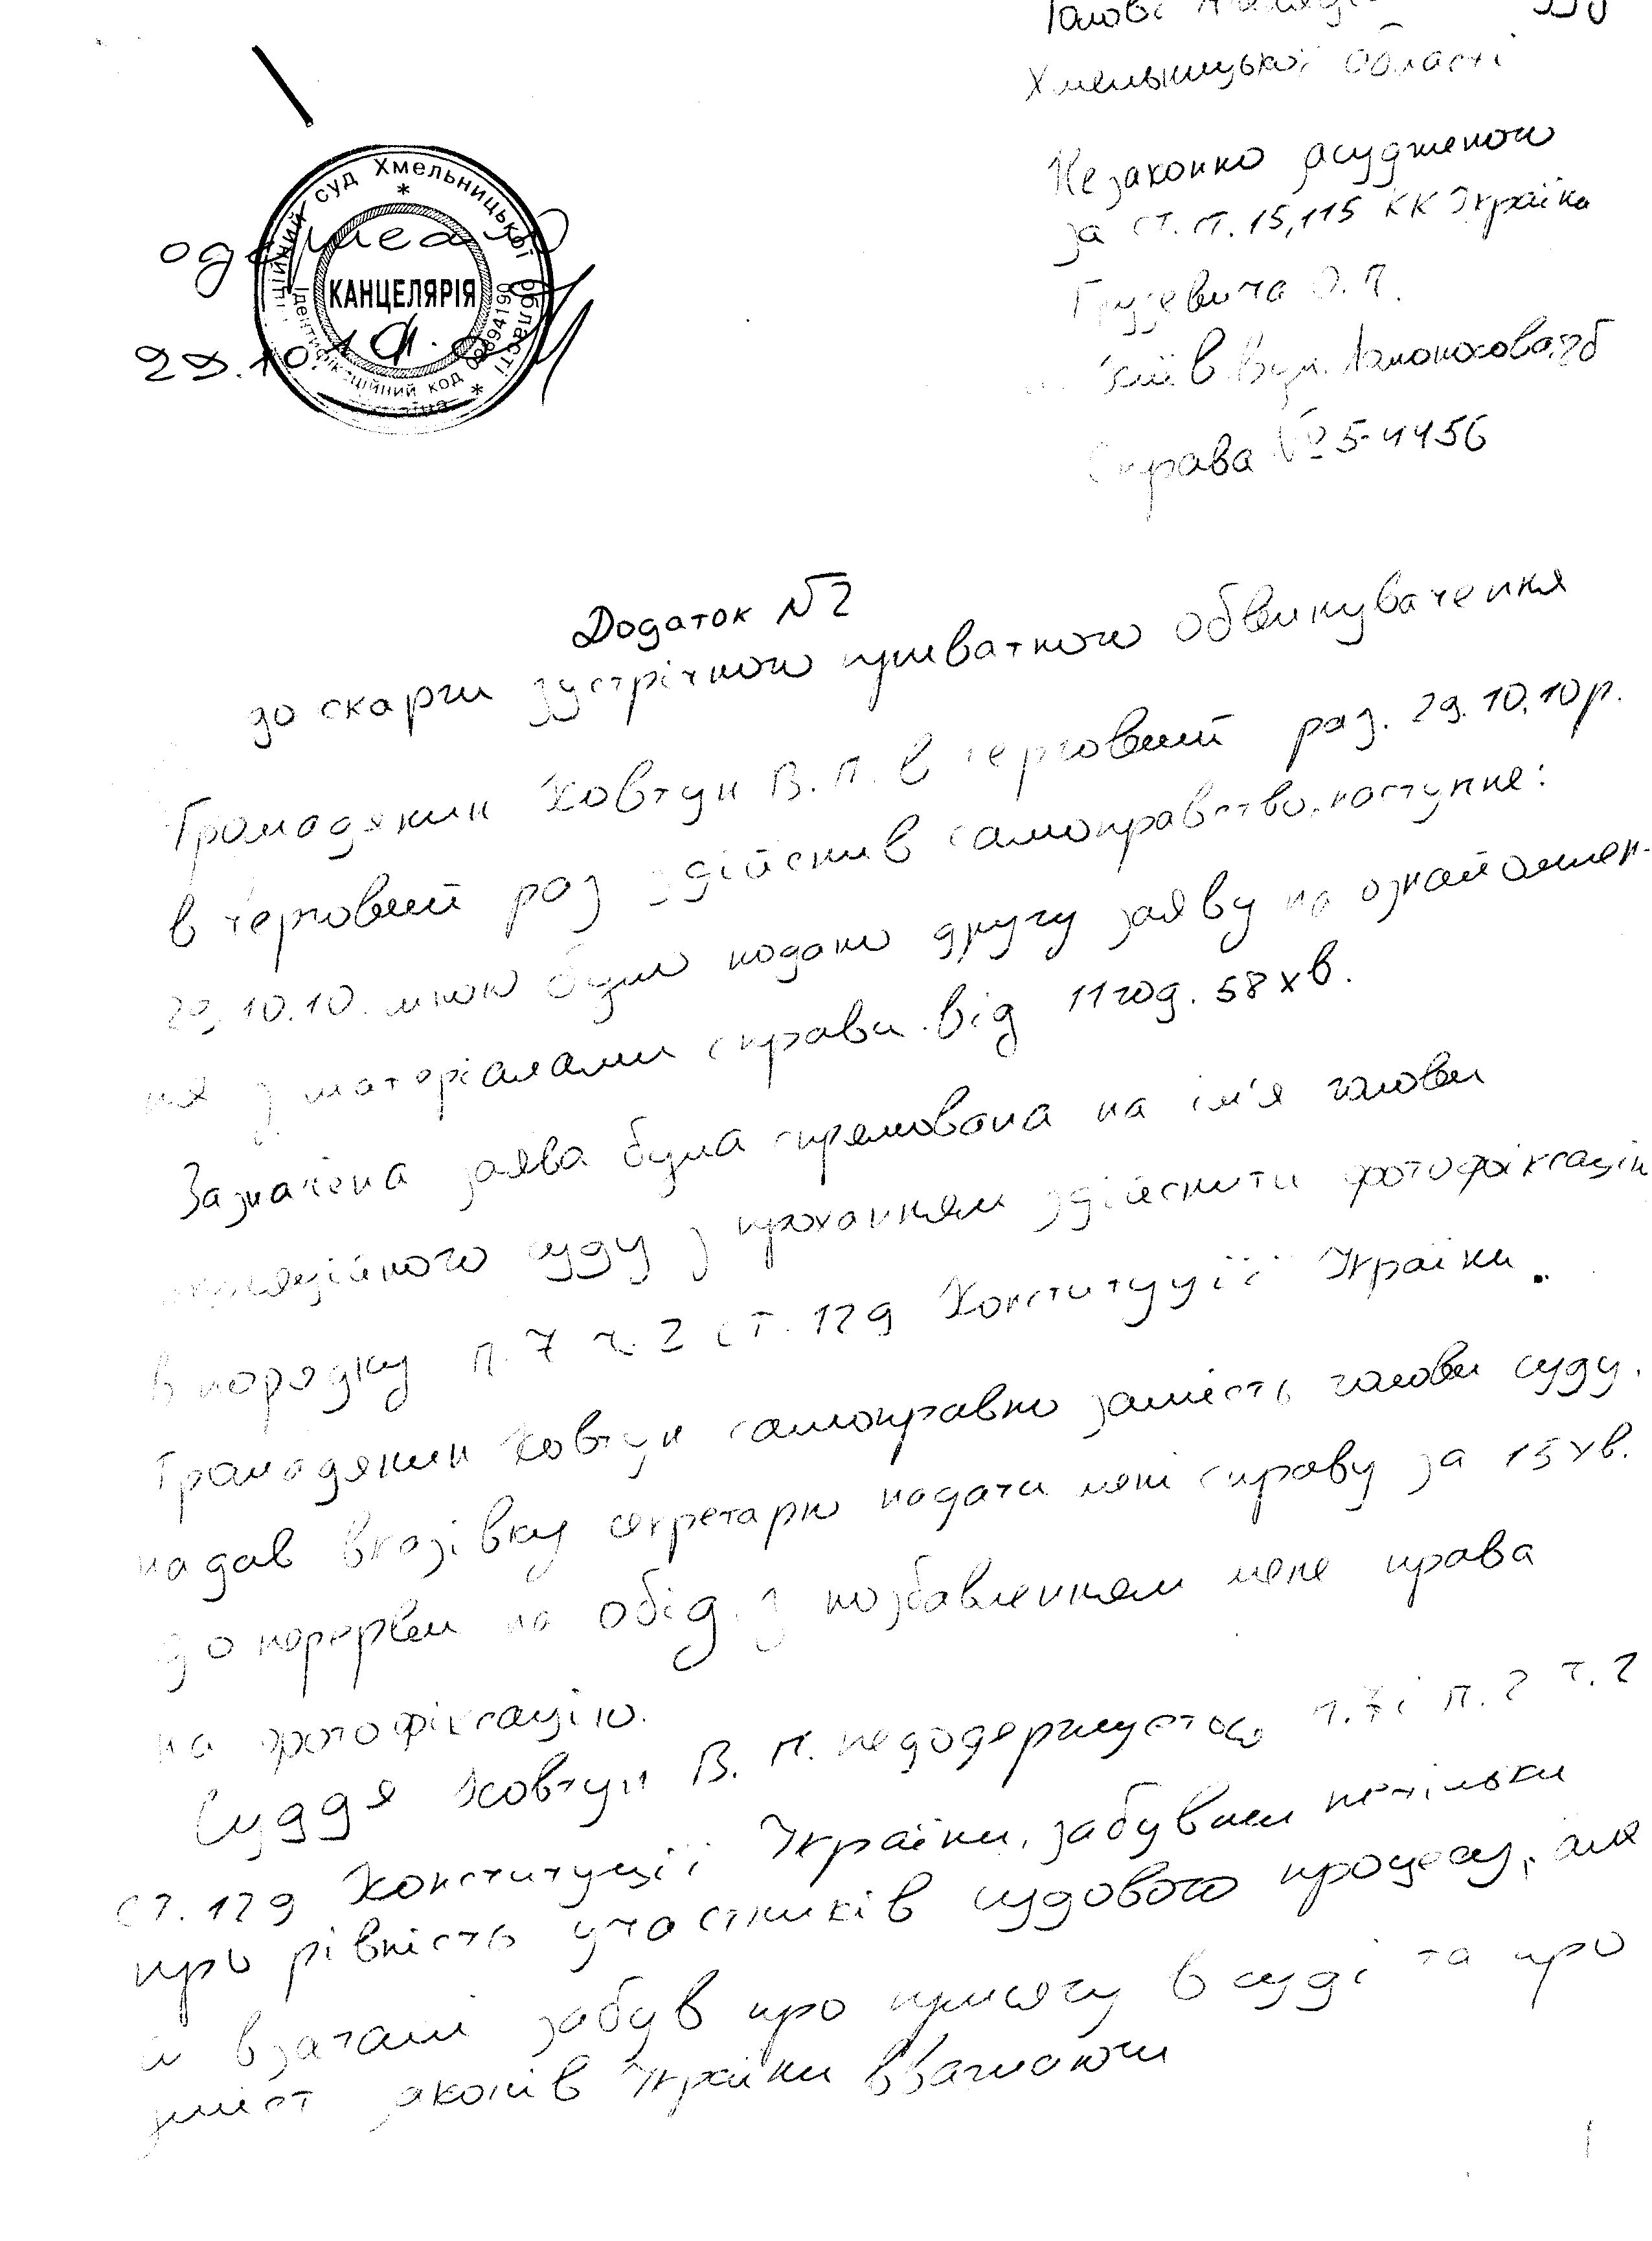 Голові Апеляційного суду
Хмельницької області
Незаконно засудженого
за ст. ст. 15, 115 КК України
О. П.
Київ вул. Ломоносова
Справа № 5-4456
апеляційний суд Хмельницької області
КАНЦЕЛЯРІЯ
Ідентифікаційний код 02894190
Україна
одержав
29.10.10.
Додаток №2
до скарги зустрічного приватного обвинувачення
Громадянин Ковтун В. П. в черговий раз. 29.10.10р.
в черговий раз здійснив самоправство, наступне:
29.10.10. мною було подано другу заяву на ознайомлен-
ня з матеріалами справи від 11 год. 58 хв.
Зазначена заява була спрямована на ім'я голови
апеляційного суду з проханням здійснити фотофіксацію
в порядку п. 7 ч. 2 ст. 129 Конституції України.
Громадянин Ковтун самоправно замість голови суду.
надав вказівку секретарю надати мені справу за 15 хв.
до перерви на обід. з позбавленням мене права
на фотофіксацію.
Суддя Ковтун В. П. недодержується п. 7 і п. 2 ч. 2
ст. 129 Конституції України, забувши нетільки
про рівність учасників судового процесу, але
й взагалі забув про присягу в суді та про
зміст законів України вважаючи